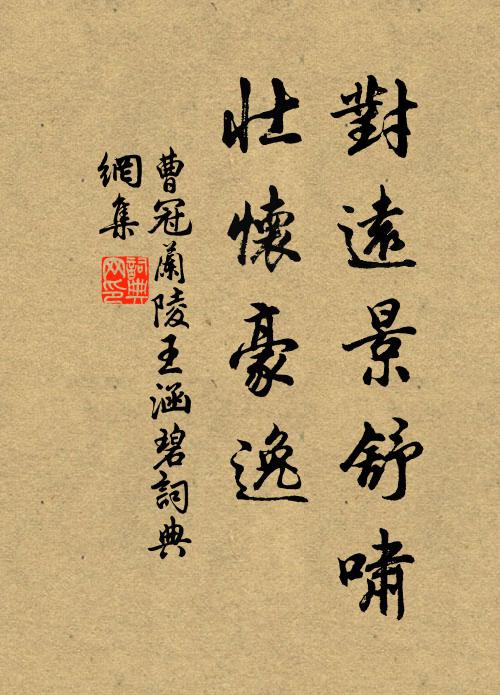 對遠景舒嘯
壯懷豪逸
曹冠蘭陵王涵碧詞典
網集
詞典
网印